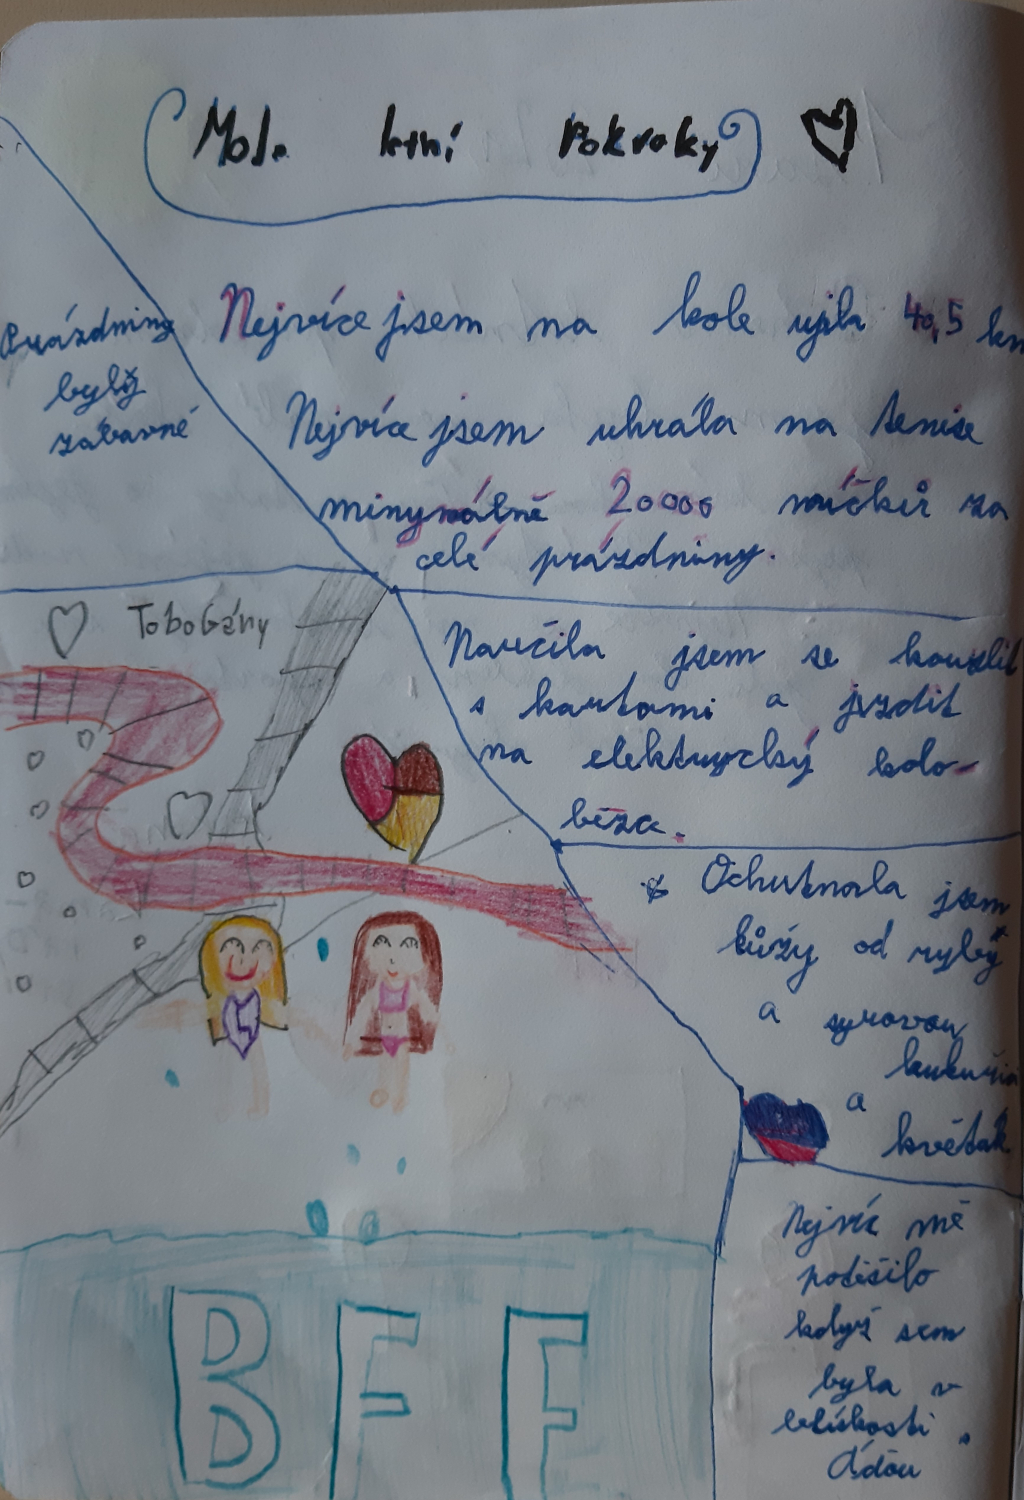 Mole letní Pokroky
Prázdniny
byly
zábavné
Nejvíce jsem na kole ujela 40,5 km
Nejvíce jsem uhrála na tenise
minymálně 20000 míčků za
celé prázdniny.
ToboGány
Naučila jsem se kouzlit
s kartami a jezdit
na elektryzcký kolo-
běžce.
Ochutnala jsem
kůžy od ryby
a syrovou
a
květák
Nejvíc mě
potěšilo
když sem
byla v
blískosti
BFF